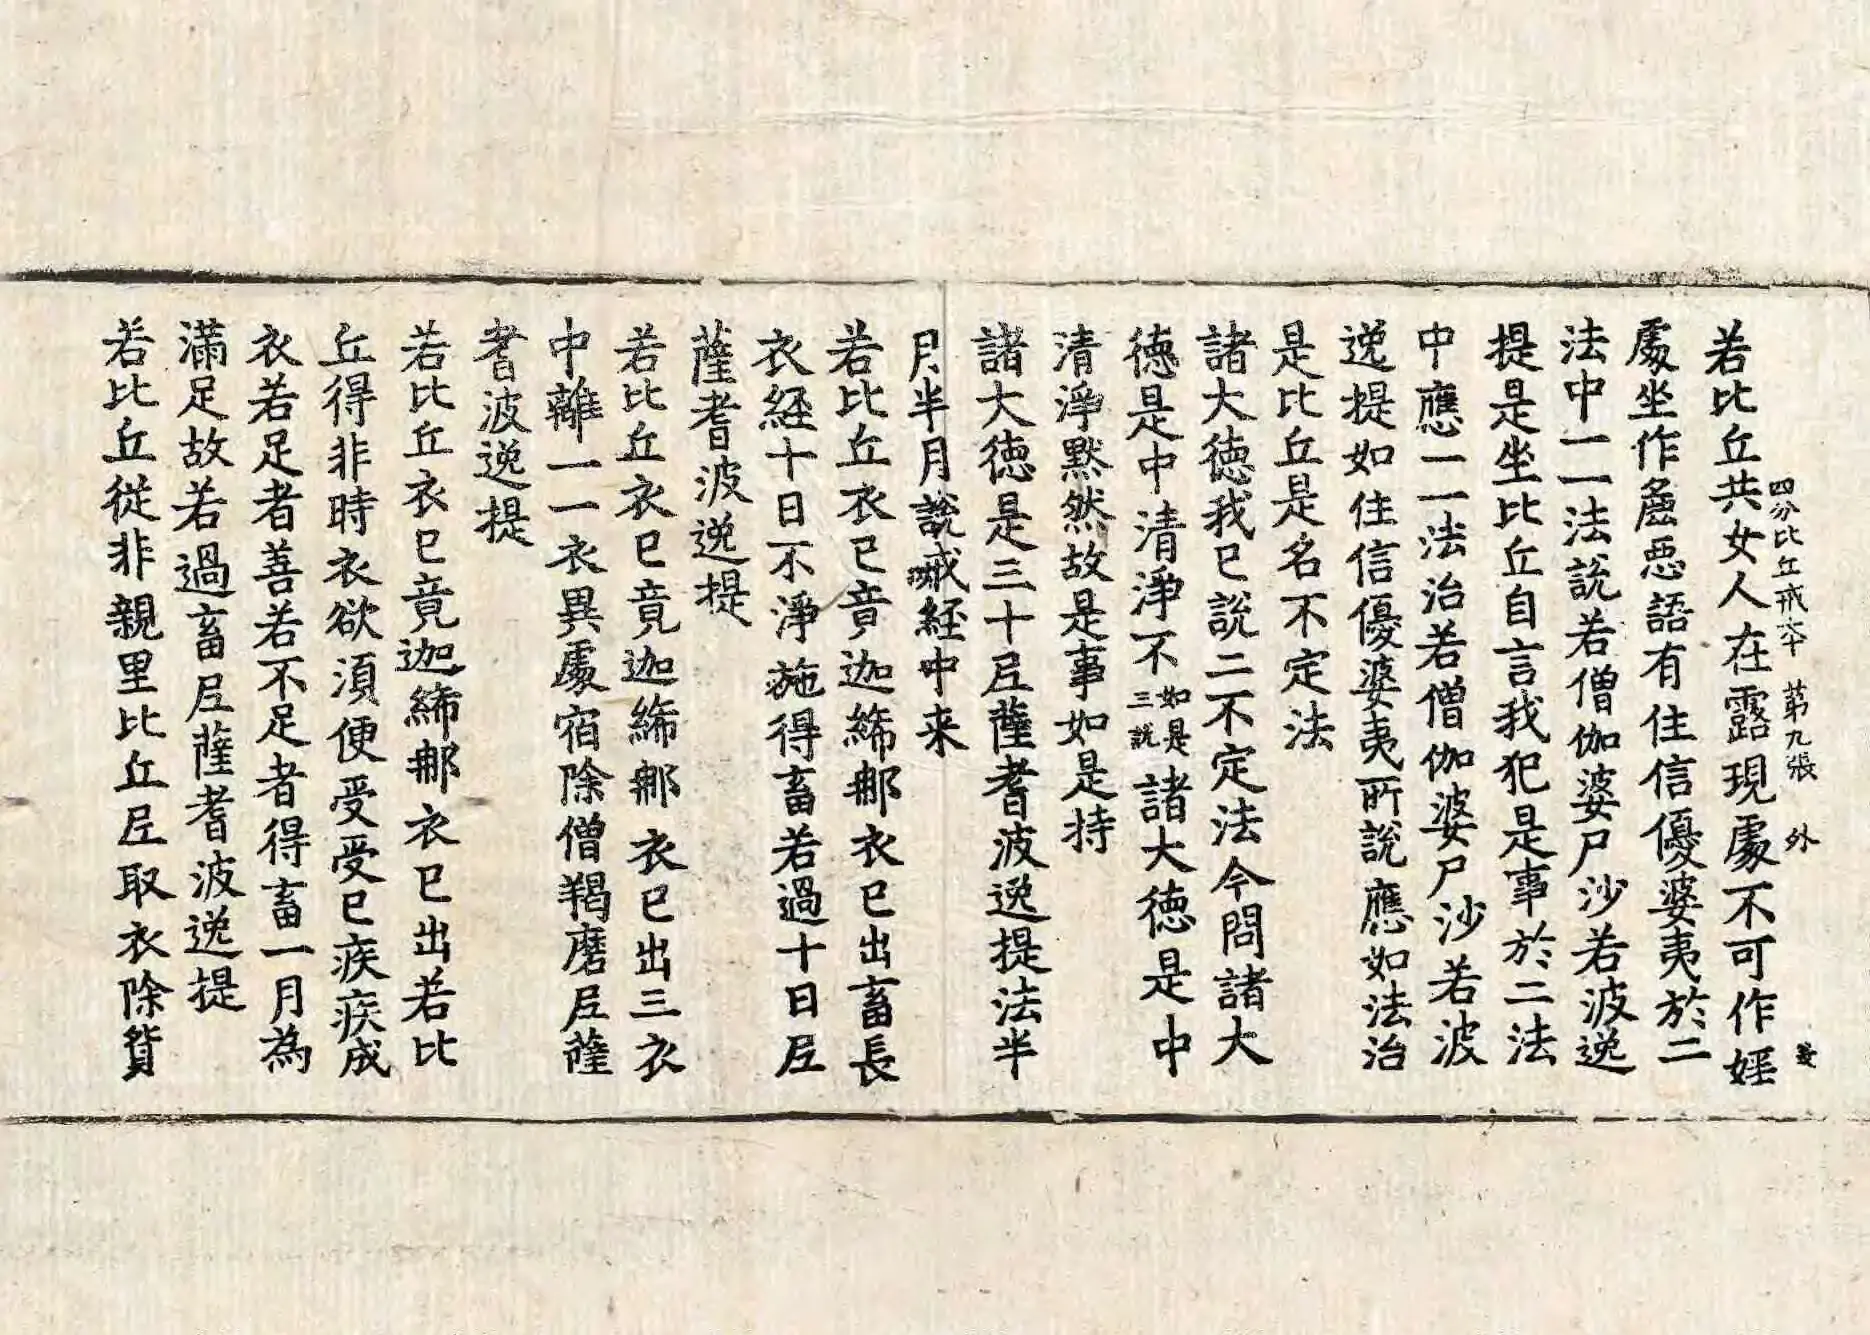 四分比丘戒本 苐九張 外
若比丘共女人在露現處不可作婬
處坐作麁惡語有住信優婆夷於二
法中一一法說若僧伽婆尸沙若波逸
提是坐比丘自言我犯是事於二法
中應一一法治若僧伽婆尸沙若波
逸提如住信優婆夷所說應如法治
是比丘是名不定法
諸大德我已說二不定法今問諸大
德是中清淨不如是三說諸大德是中
清淨黙然故是事如是持
諸大德是三十尼薩耆波逸提法半
月半月說戒經中来
若比丘衣已竟迦絺那衣已出畜長
衣經十日不淨施得畜若過十日尼
薩耆波逸提
若比丘衣已竟迦絺那衣已出三衣
中離一一衣異處宿除僧羯磨尼薩
耆波逸提
若比丘衣已竟迦絺那衣已出若比
丘得非時衣欲湏便受受已疾疾成
衣若足者善若不足者得畜一月為
滿足故若過畜尼薩耆波逸提
若比丘從非親里比丘尼取衣除貨